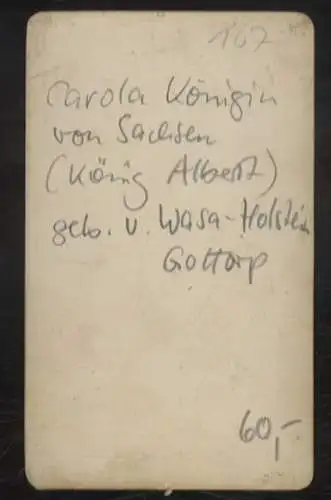 167
Carola Königin
von Sachsen
(König Albert)
geb. v. Wasa-Holstein
Gottorp
60,-